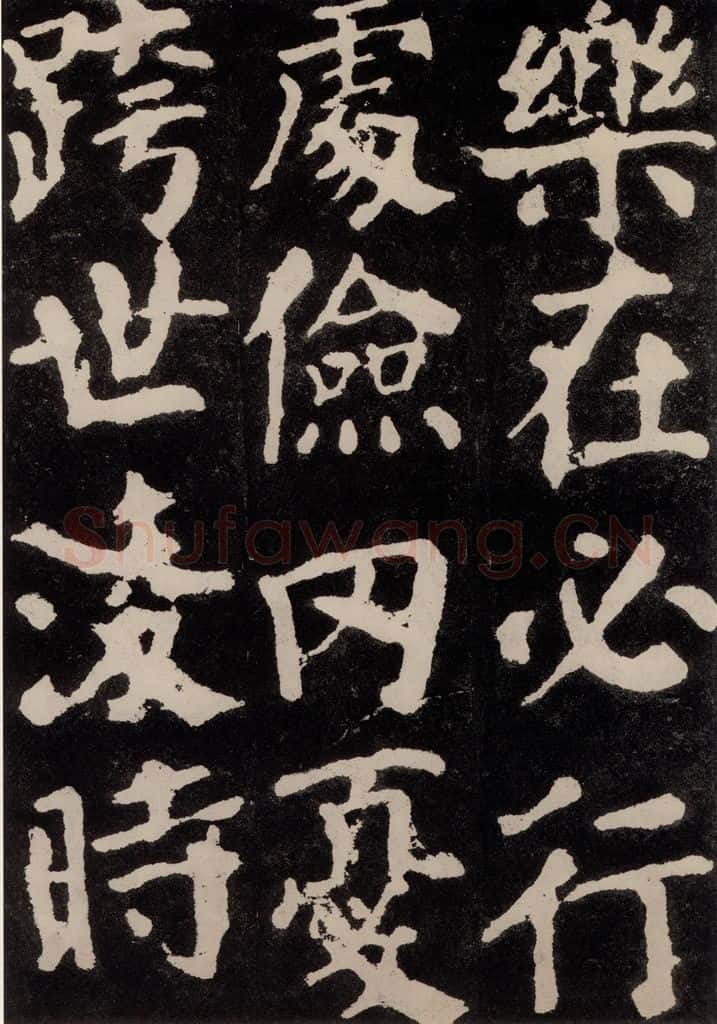 樂在必行
處儉内憂
跨世凌時
Shufawang.CN